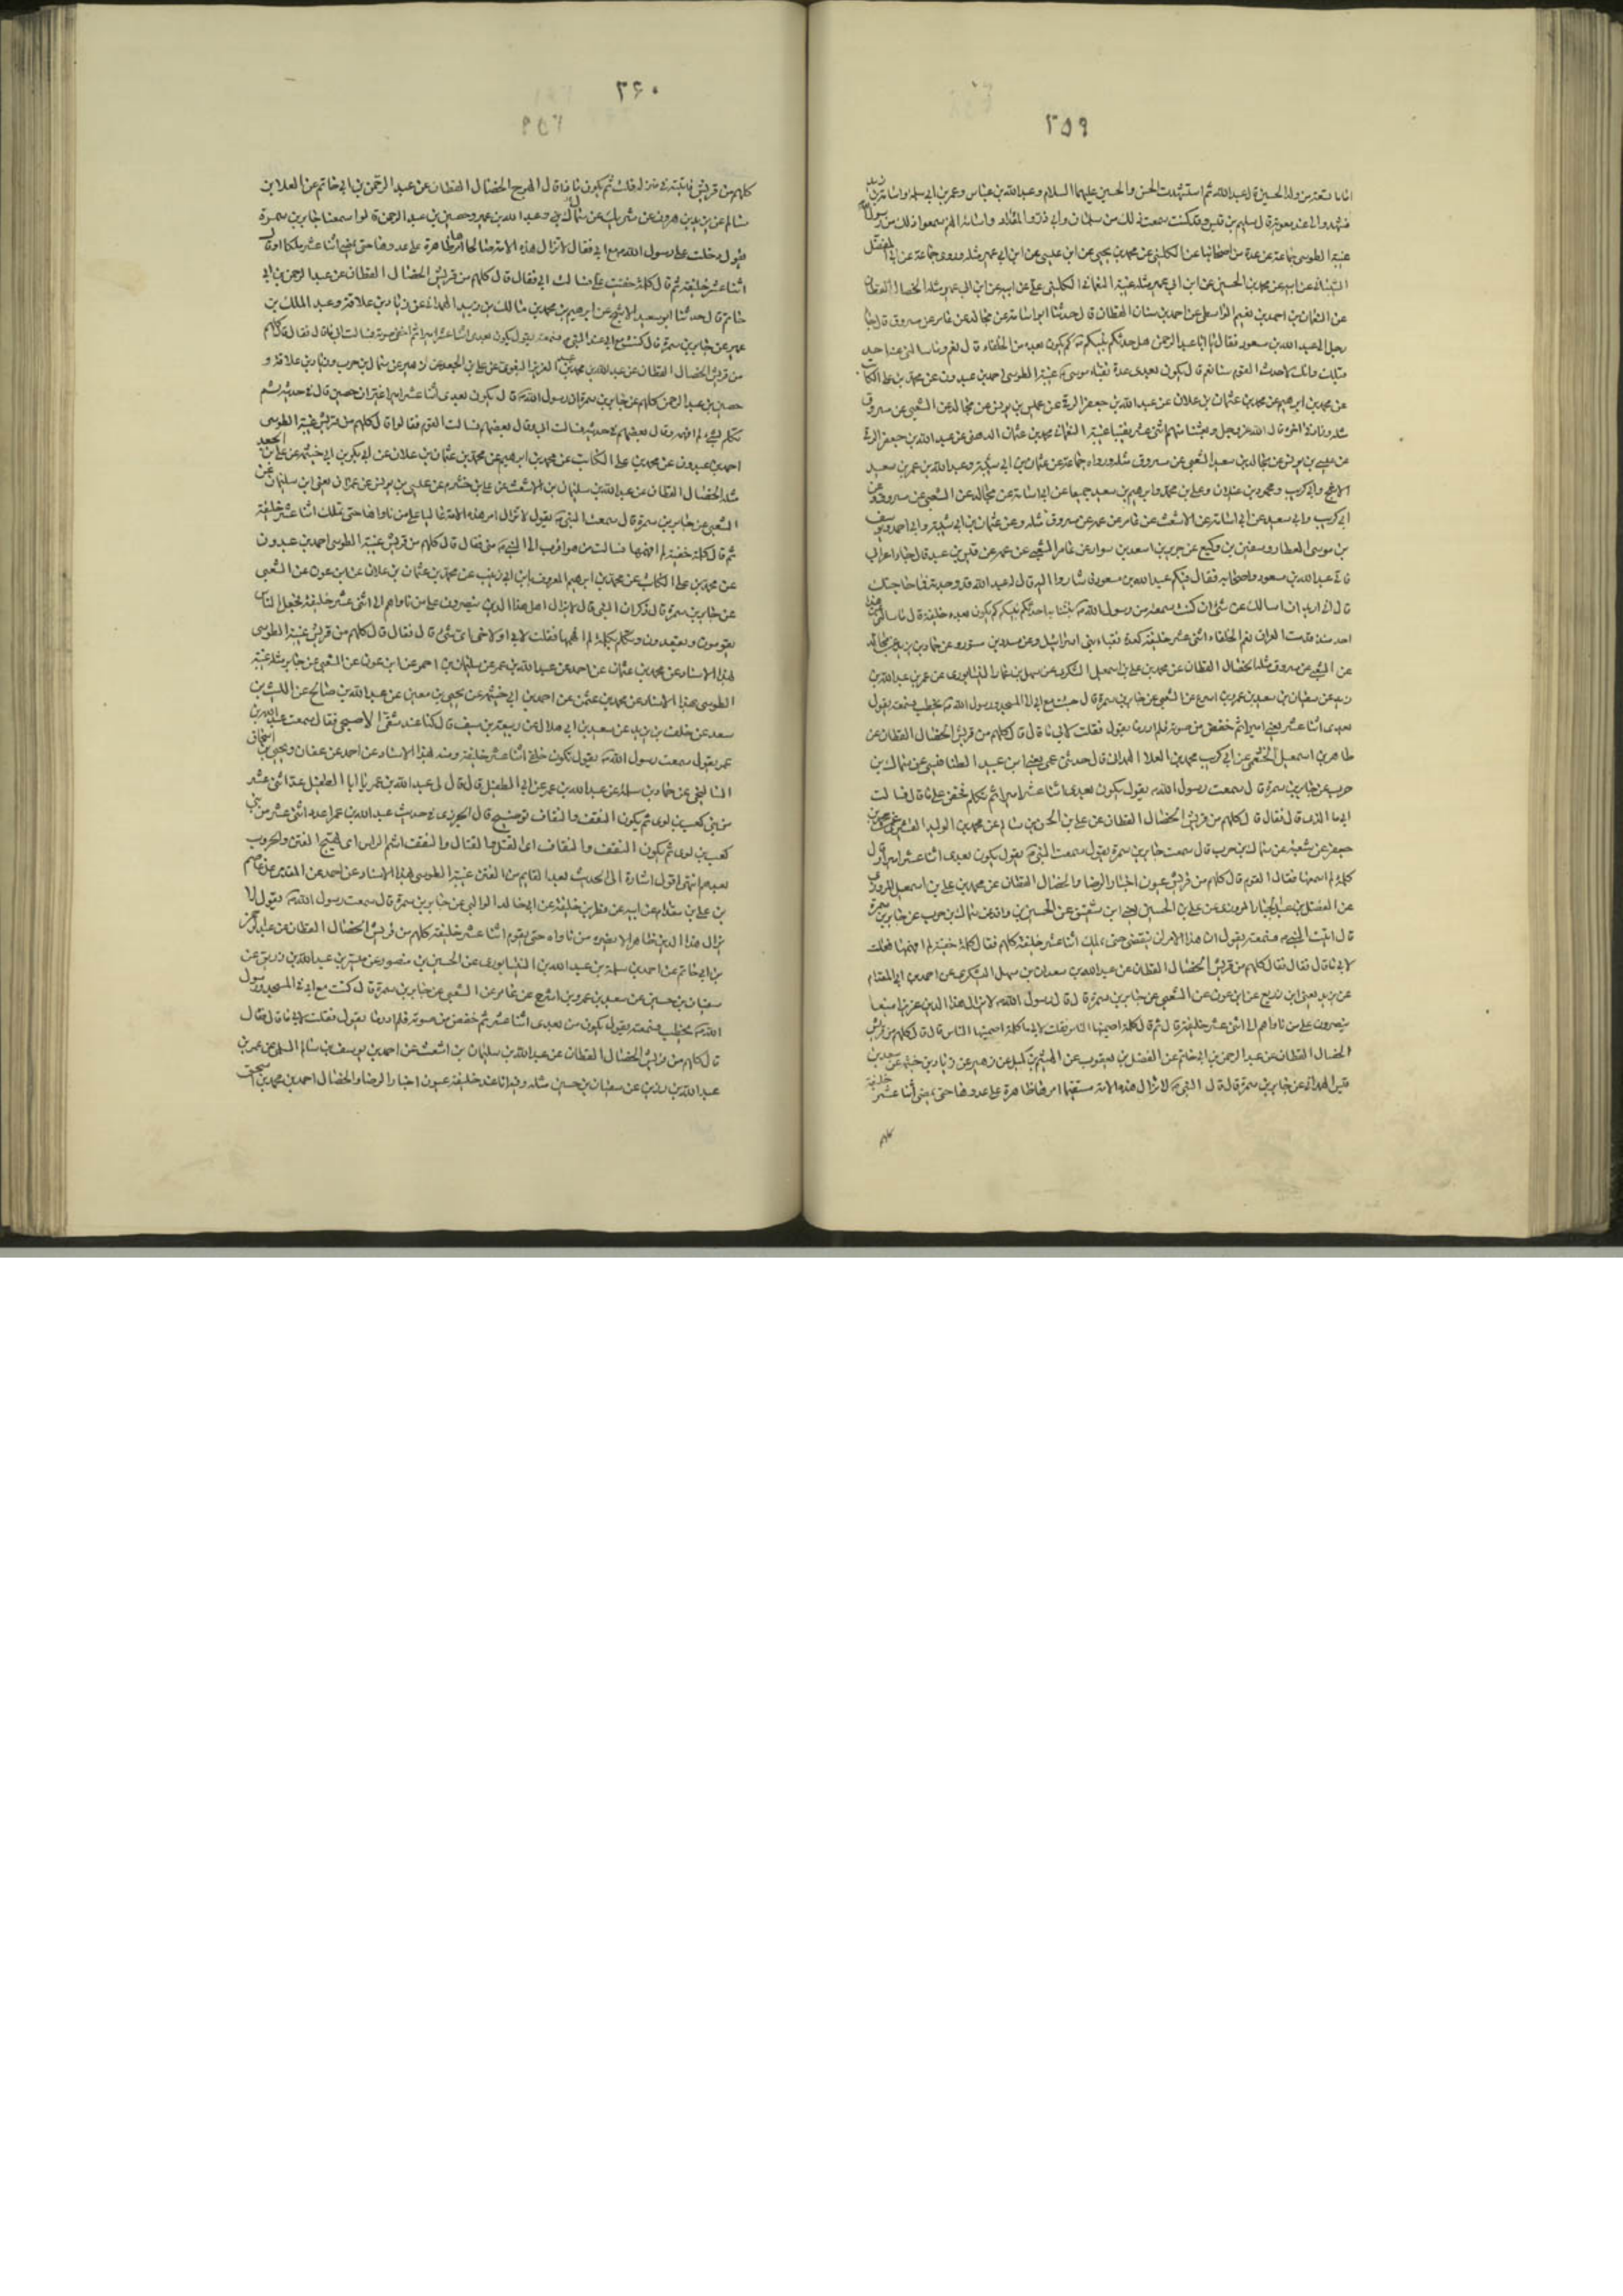 ٢٥٩
اثنا تسعة من ولد الحسين قال عبد الله ثم استشهدت الحسن والحسين عليهما السلام وعبد الله بن عباس وعمر بن ابي سلمة واسامة بن زيد
فشهدوا لي عند معوية قال سليم بن قيس وقد كنت سمعت ذلك من سلمان وابي ذر والمقداد واسامة انهم سمعوا ذلك من رسول الله
غيبة الطوسي جماعة عن عدة من اصحابنا عن الكليني عن محمد بن يحيى عن ابن عيسى عن ابن ابي عمير مثله وروى جماعة عن ابي المفضل
الشيباني عن ابيه عن محمد بن الحسين عن ابن ابي عمير مثله غيبة النعماني الكليني عن علي عن ابيه عن ابن ابي عمير مثله الخصال القطان
عن النعمان بن احمد بن نعيم الواسطي عن احمد بن سنان القطان قال حدثنا ابو اسامة عن مجالد عن عامر عن مسروق قال جاء
رجل الى عبد الله بن مسعود فقال يا ابا عبد الرحمن هل حدثكم نبيكم كم يكون بعده من الخلفاء قال نعم وما سالني عنها احد
قبلك وانك لاحدث القوم سنا نعم قال يكون بعدي عدة نقباء موسى غيبة الطوسي احمد بن عبدون عن محمد بن علي الكاتب
عن محمد بن ابراهيم عن محمد بن عثمان بن علان عن عبد الله بن جعفر الرقي عن عيسى بن يونس عن مجالد عن الشعبي عن مسروق
مثله وزاد في اخره قال الله عز وجل وبعثنا منهم اثنى عشر نقيبا غيبة النعماني محمد بن عثمان الدهني عن عبد الله بن جعفر الرقي
عن عيسى بن يونس عن مجالد بن سعيد الشعبي عن مسروق مثله ورواه جماعة عن عثمان بن ابي شيبة وعبد الله بن عمر بن سعيد
الاشج وابي كريب ومحمود بن غيلان وعلي بن محمد وابراهيم بن سعيد جميعا عن ابي اسامة عن مجالد عن الشعبي عن مسروق وعن
ابي كريب وابي سعيد عن ابي اسامة عن الاشعث عن عامر عن عمه عن مسروق مثله وعن عثمان بن ابي شيبة وابي احمد ويوسف
بن موسى العطار وسفين بن وكيع عن جرير بن اسعد بن سوار عن عامر الشعبي عن عمه عن قيس بن عبد قال جاء اعرابي
فاتى عبد الله بن مسعود واصحابه فقال فيكم عبد الله بن مسعود فاشاروا اليه قال له عبد الله قد وجدته فما حاجتك
قال اني اريد ان اسالك عن شئ ان كنت سمعته من رسول الله فنبئنا به احدثكم نبيكم كم يكون بعده خليفة قال ما سالني عن هذا
احد منذ قدمت العراق نعم الخلفاء اثنى عشر خليفة كعدة نقباء بني اسرائيل وعن مسدد بن مستورد عن حماد بن زيد عن مجالد
عن الشعبي عن مسروق مثله الخصال القطان عن محمد بن علي بن اسمعيل السكري عن سهل بن عمار النيسابوري عن عمر بن عبد الله بن
زيد عن سفيان بن سعيد بن عمرو بن اشوع عن الشعبي عن جابر بن سمرة قال جئت مع ابي الى المسجد ورسول الله يخطب فسمعته يقول
بعدي اثنا عشر يعني اميرا ثم خفض من صوته فلم ادر ما يقول فقلت لابي ما قال قال كلهم من قريش الخصال القطان عن
طاهر بن اسمعيل الخثعمي عن ابي كريب محمد بن العلا الهمداني قال حدثني عمي يعني ابن عبيد الطنافسي عن سماك بن
حرب عن جابر بن سمرة قال سمعت رسول الله يقول يكون بعدي اثنا عشر اميرا ثم تكلم فخفي علي ما قال فسالت
ابي ما الذي قال فقال قال كلهم من قريش الخصال القطان عن علي بن الحسن بن سالم عن محمد بن الوليد البسري عن محمد بن
جعفر عن شعبة عن سماك بن حرب قال سمعت جابر بن سمرة يقول سمعت النبي يقول يكون بعدي اثنا عشر اميرا وقال
كلمة لم اسمعها فقال القوم قال كلهم من قريش عيون اخبار الرضا والخصال القطان عن محمد بن علي بن اسمعيل المروزي
عن الفضل بن عبد الجبار المروزي عن علي بن الحسين يعني ابن شقيق عن الحسين بن واقد عن سماك بن حرب عن جابر بن سمرة
قال اتيت النبي فسمعته يقول ان هذا الامر لن ينقضي حتى يملك اثنا عشر خليفة كلهم فقال كلمة خفية لم افهمها فقلت
لابي ما قال فقال فقال كلهم من قريش الخصال القطان عن عبد الله بن سعدان بن سهل اليشكري عن احمد بن ابي المقدام
عن يزيد يعني ابن زريع عن ابن عون عن الشعبي عن جابر بن سمرة قال قال رسول الله لا يزال هذا الدين عزيزا منيعا
ينصرون على من ناواهم الى اثنى عشر خليفة قال ثم قال كلمة اصمنيها الناس فقلت لابي ما كلمة اصمنيها الناس قال قال كلهم من قريش
الخصال القطان عن عبد الرحمن بن ابي حاتم عن الفضل بن يعقوب عن الهيثم بن كميل عن زهير عن زياد بن خيثمة عن سعيد بن
قيس الهمداني عن جابر بن سمرة قال قال النبي لا تزال هذه الامة مستقيما امرها ظاهرة على عدوها حتى يمضي اثنا عشر خليفة
كلهم
٣۶٠
٢٥٩
كلهم من قريش فاتيته في منزله قلت ثم يكون ماذا قال الهرج الخصال القطان عن عبد الرحمن بن ابي حاتم عن العلا بن
سالم عن يزيد بن هرون عن شريك عن سماك بن وعبد الله بن عمير وحصين بن عبد الرحمن قالوا سمعنا جابر بن سمرة
يقول دخلت على رسول الله مع ابي فقال لا تزال هذه الامة صالحا امرها ظاهرة على عدوها حتى يمضي اثنا عشر ملكا او قال
اثنا عشر خليفة ثم قال كلمة خفيت علي فسالت ابي فقال قال كلهم من قريش الخصال القطان عن عبد الرحمن بن ابي
حاتم قال حدثنا ابو سعيد الاشج عن ابرهيم بن محمد بن مالك بن زبيد الهمداني عن زياد بن علاقة وعبد الملك بن
عمير عن جابر بن سمرة قال كنت مع ابي عند النبي فسمعته يقول يكون بعدي اثنا عشر اميرا ثم اخفى صوته فسالت ابي فقال قال كلهم
من قريش الخصال القطان عن عبد الله بن محمد بن عبد العزيز البغوي عن علي بن الجعد عن زهير عن سماك بن حرب وزياد بن علاقة و
حصين بن عبد الرحمن كلهم عن جابر بن سمرة ان رسول الله قال يكون بعدي اثنا عشر اميرا غير ان حصين قال في حديثه ثم
تكلم بشئ لم افهمه وقال بعضهم في حديثه فسالت ابي وقال بعضهم فسالت القوم فقالوا قال كلهم من قريش غيبة الطوسي
احمد بن عبدون عن محمد بن علي الكاتب عن محمد بن ابراهيم عن محمد بن عثمان بن علان عن ابي بكر بن ابي خيثمة عن علي بن الجعد
مثله الخصال القطان عن عبد الله بن سليمان بن الاشعث عن علي بن خشرم عن عيسى بن يونس عن عمران يعني ابن سليمان عن
الشعبي عن جابر بن سمرة قال سمعت النبي يقول لا تزال امر هذه الامة غالبا على من ناواها حتى تملك اثنا عشر خليفة
ثم قال كلمة خفية لم افهمها فسالت من هو اقرب الى النبي مني فقال قال كلهم من قريش غيبة الطوسي احمد بن عبدون
عن محمد بن علي الكاتب عن محمد بن ابرهيم المعروف بابن ابي زينب عن محمد بن عثمان بن علان عن ابن عون عن الشعبي
عن جابر بن سمرة قال ذكر ان النبي قال لا يزال اهل هذا الدين ينصرون على من ناواهم الى اثنى عشر خليفة فجعل الناس
يقومون ويقعدون وتكلم بكلمة لم افهمها فقلت لابي او لاخي اي شئ قال فقال قال كلهم من قريش غيبة الطوسي
بهذا الاسناد عن محمد بن عثمان عن احمد عن عبد الله بن عمر عن سليمان بن احمر عن ابن عون عن الشعبي عن جابر مثله غيبة
الطوسي بهذا الاسناد عن محمد بن عثمن عن احمد بن ابي خيثمة عن يحيى بن معين عن عبد الله بن صالح عن الليث بن
سعد عن خلف بن يزيد عن سعيد بن ابي هلال عن ربيعة بن سيف قال كنا عند شقي الاصبحي فقال سمعت عبد الله بن
عمر يقول سمعت رسول الله يقول يكون خلفي اثنا عشر خليفة ومنه بهذا الاسناد عن احمد عن عفان ويحيى بن اسحاق
السالحيني عن حماد بن سلمة عن عبد الله بن عمر عن ابي الطفيل قال قال لي عبد الله بن عمر يا ابا الطفيل عد اثنى عشر
من بني كعب بن لوى ثم يكون النقف والنقاف توضيح قال الجزري في حديث عبد الله بن عمر اعدد اثنى عشر من بني
كعب بن لوى ثم يكون النقف والنقاف اي القتل والقتال والنقف هشم الراس اي تهيج الفتن والحروب
بعدهم انتهى اقول اشارة الى ما يحدث بعد القايم من الفتن غيبة الطوسي بهذا الاسناد عن احمد عن المقدمي عن عاصم
بن علي بن مقدام عن ابيه عن فطر بن خليفة عن ابي خالد الوالبي عن جابر بن سمرة قال سمعت رسول الله يقول لا
يزال هذا الدين ظاهرا لا يضره من ناواه حتى يقوم اثنا عشر خليفة كلهم من قريش الخصال القطان عن عبد الرحمن
بن ابي حاتم عن احمد بن سلمة بن عبد الله النيسابوري عن الحسين بن منصور عن مبشر بن عبد الله بن رزين عن
سفيان بن حسين عن سعيد بن عمرو بن اشوع عن عامر عن الشعبي عن جابر بن سمرة قال كنت مع ابي في المسجد ورسول
الله يخطب فسمعته يقول يكون من بعدي اثنا عشر ثم خفض من صوته فلم ادر ما يقول فقلت لابي ما قال فقال
قال كلهم من قريش الخصال القطان عن عبد الله بن سليمان بن اشعث عن احمد بن يوسف بن سالم السلمي عن عمر بن
عبد الله بن رزين عن سفيان بن حسين مثله وفيه اثنا عشر خليفة عيون اخبار الرضا والخصال احمد بن محمد بن اسحق